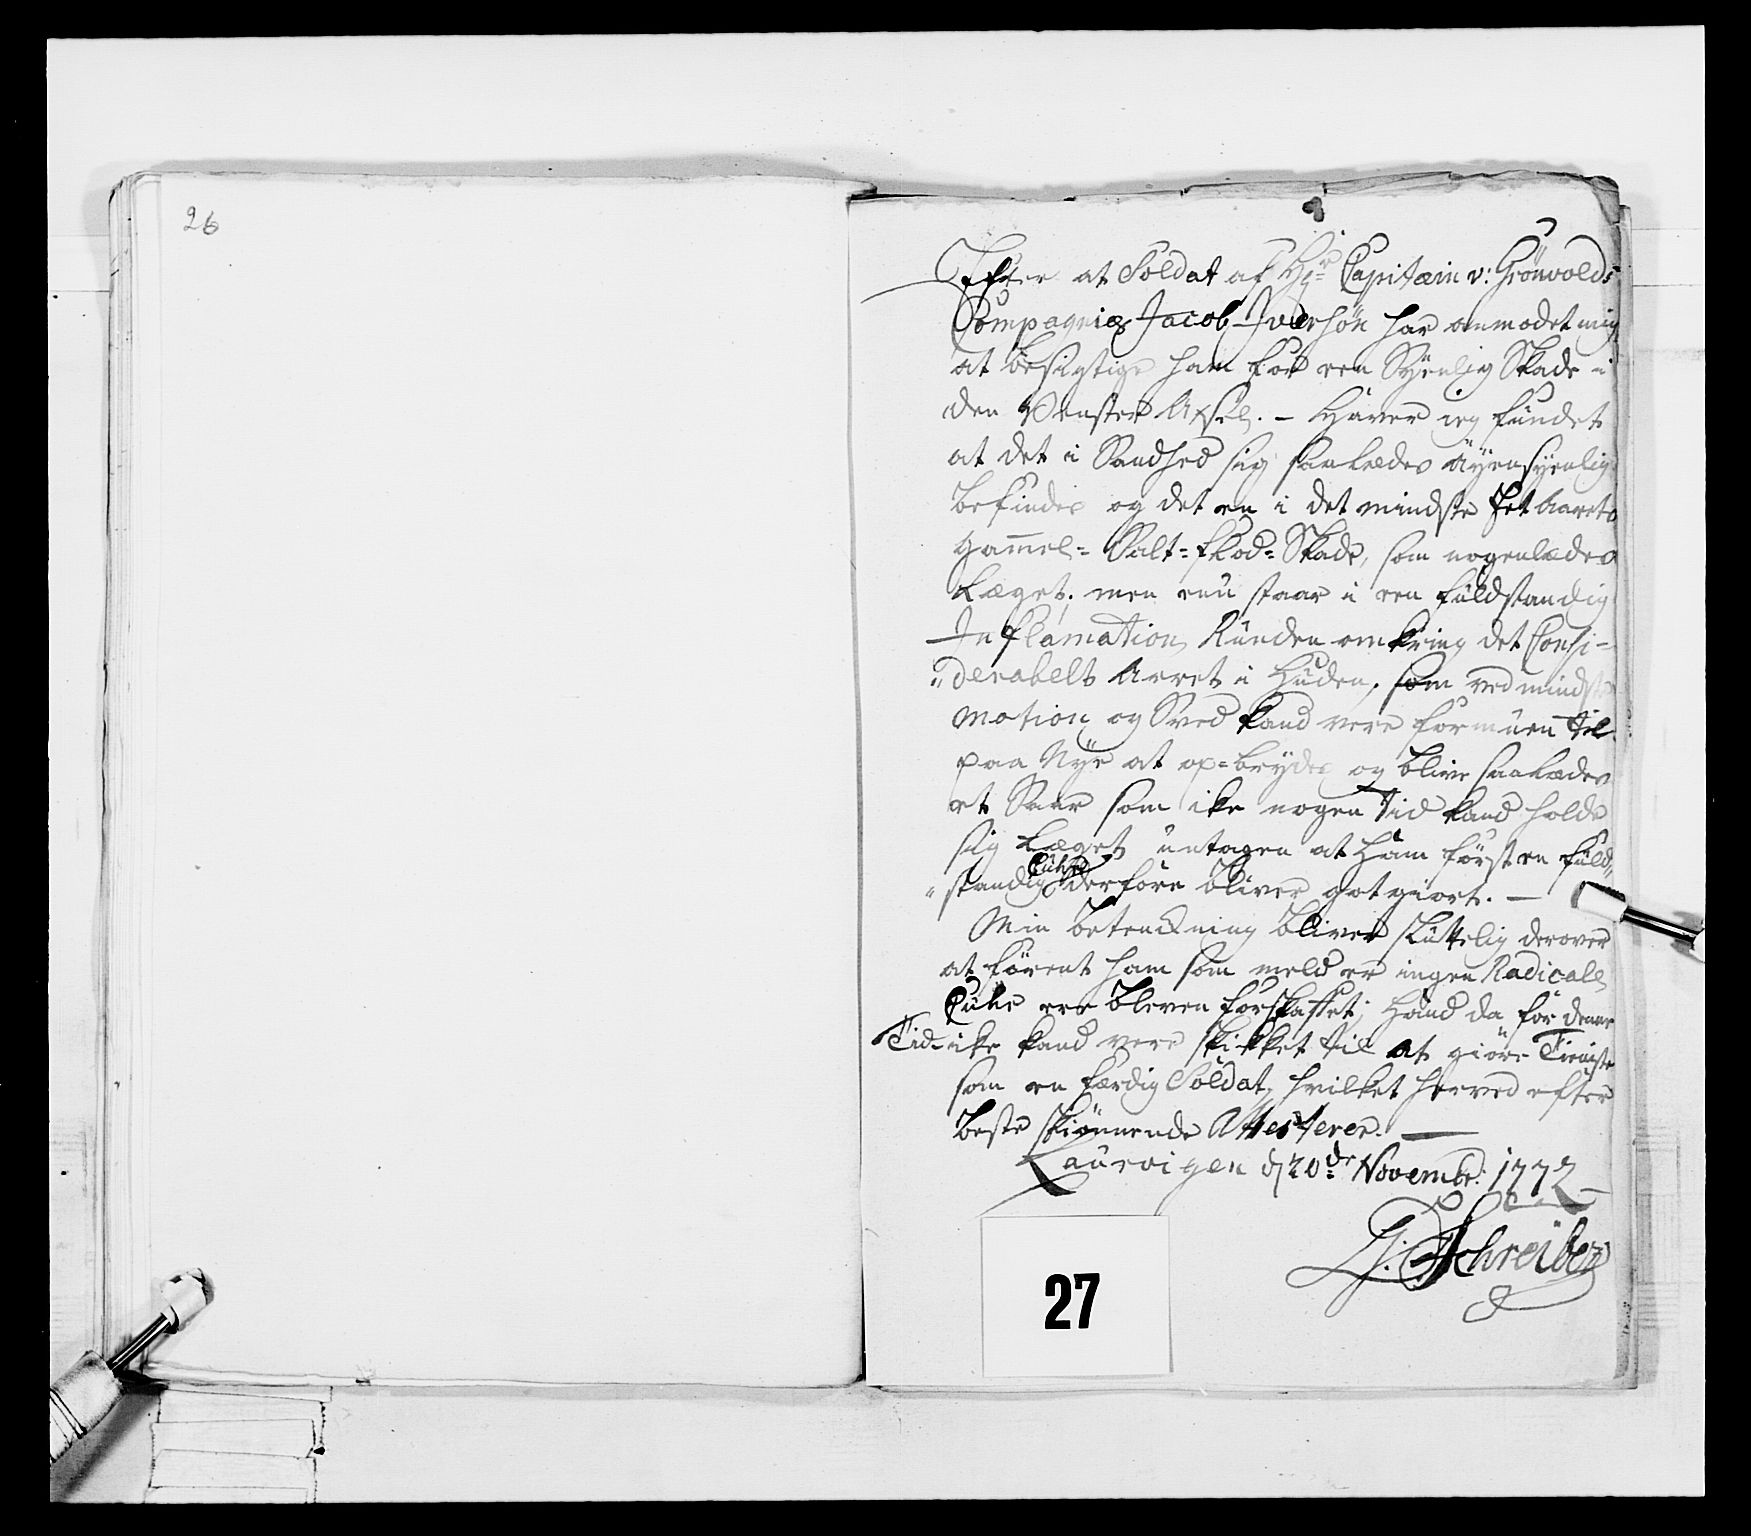 26
Efter at Soldat af Hr Capitain v: Grönvolds
Compagnie Jacob Iversön har anmodet mig
at besigtige ham for een Syenlig Skade i
den Venster Axsel. – Haver ieg fundet
at det i Sandhed sig saaledes Øyensyenlig
befindes og det en i det mindste Fet Aarets
gammel= Salt=flod=Skade, som nogenledes
Læget, men enu staar i een fuldstandig
Inflamation, Runden omkring det Consi-
"derabelt Arret i Huden, som ved mindste
Motion og Sved kand vere formuen til
paa Nye at op=brydes og blive saaledes
et Saar som ike nogen Tid kand holde
sig Læget, untagen at Ham först en fuld"
Cuhr
"standig derfore bliver got giort. –
Min betenckning bliver sluttelig derover
at förent ham som meld er ingen Radicale
Cuhr ere bleven forskaffet; Hand da for denne
Tid ike kand vere skikket til at giöre Tieniste
som en færdig Soldat, hvilket herved efter
beste skiönnende Attesterer. –
Laurvigen d 20de Novembr: 1772 –
Schreiber
27